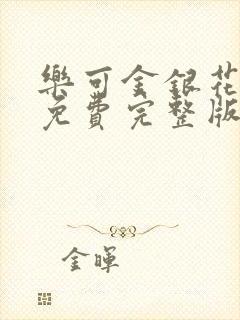 樂可金銀花
免費完整版
金暉